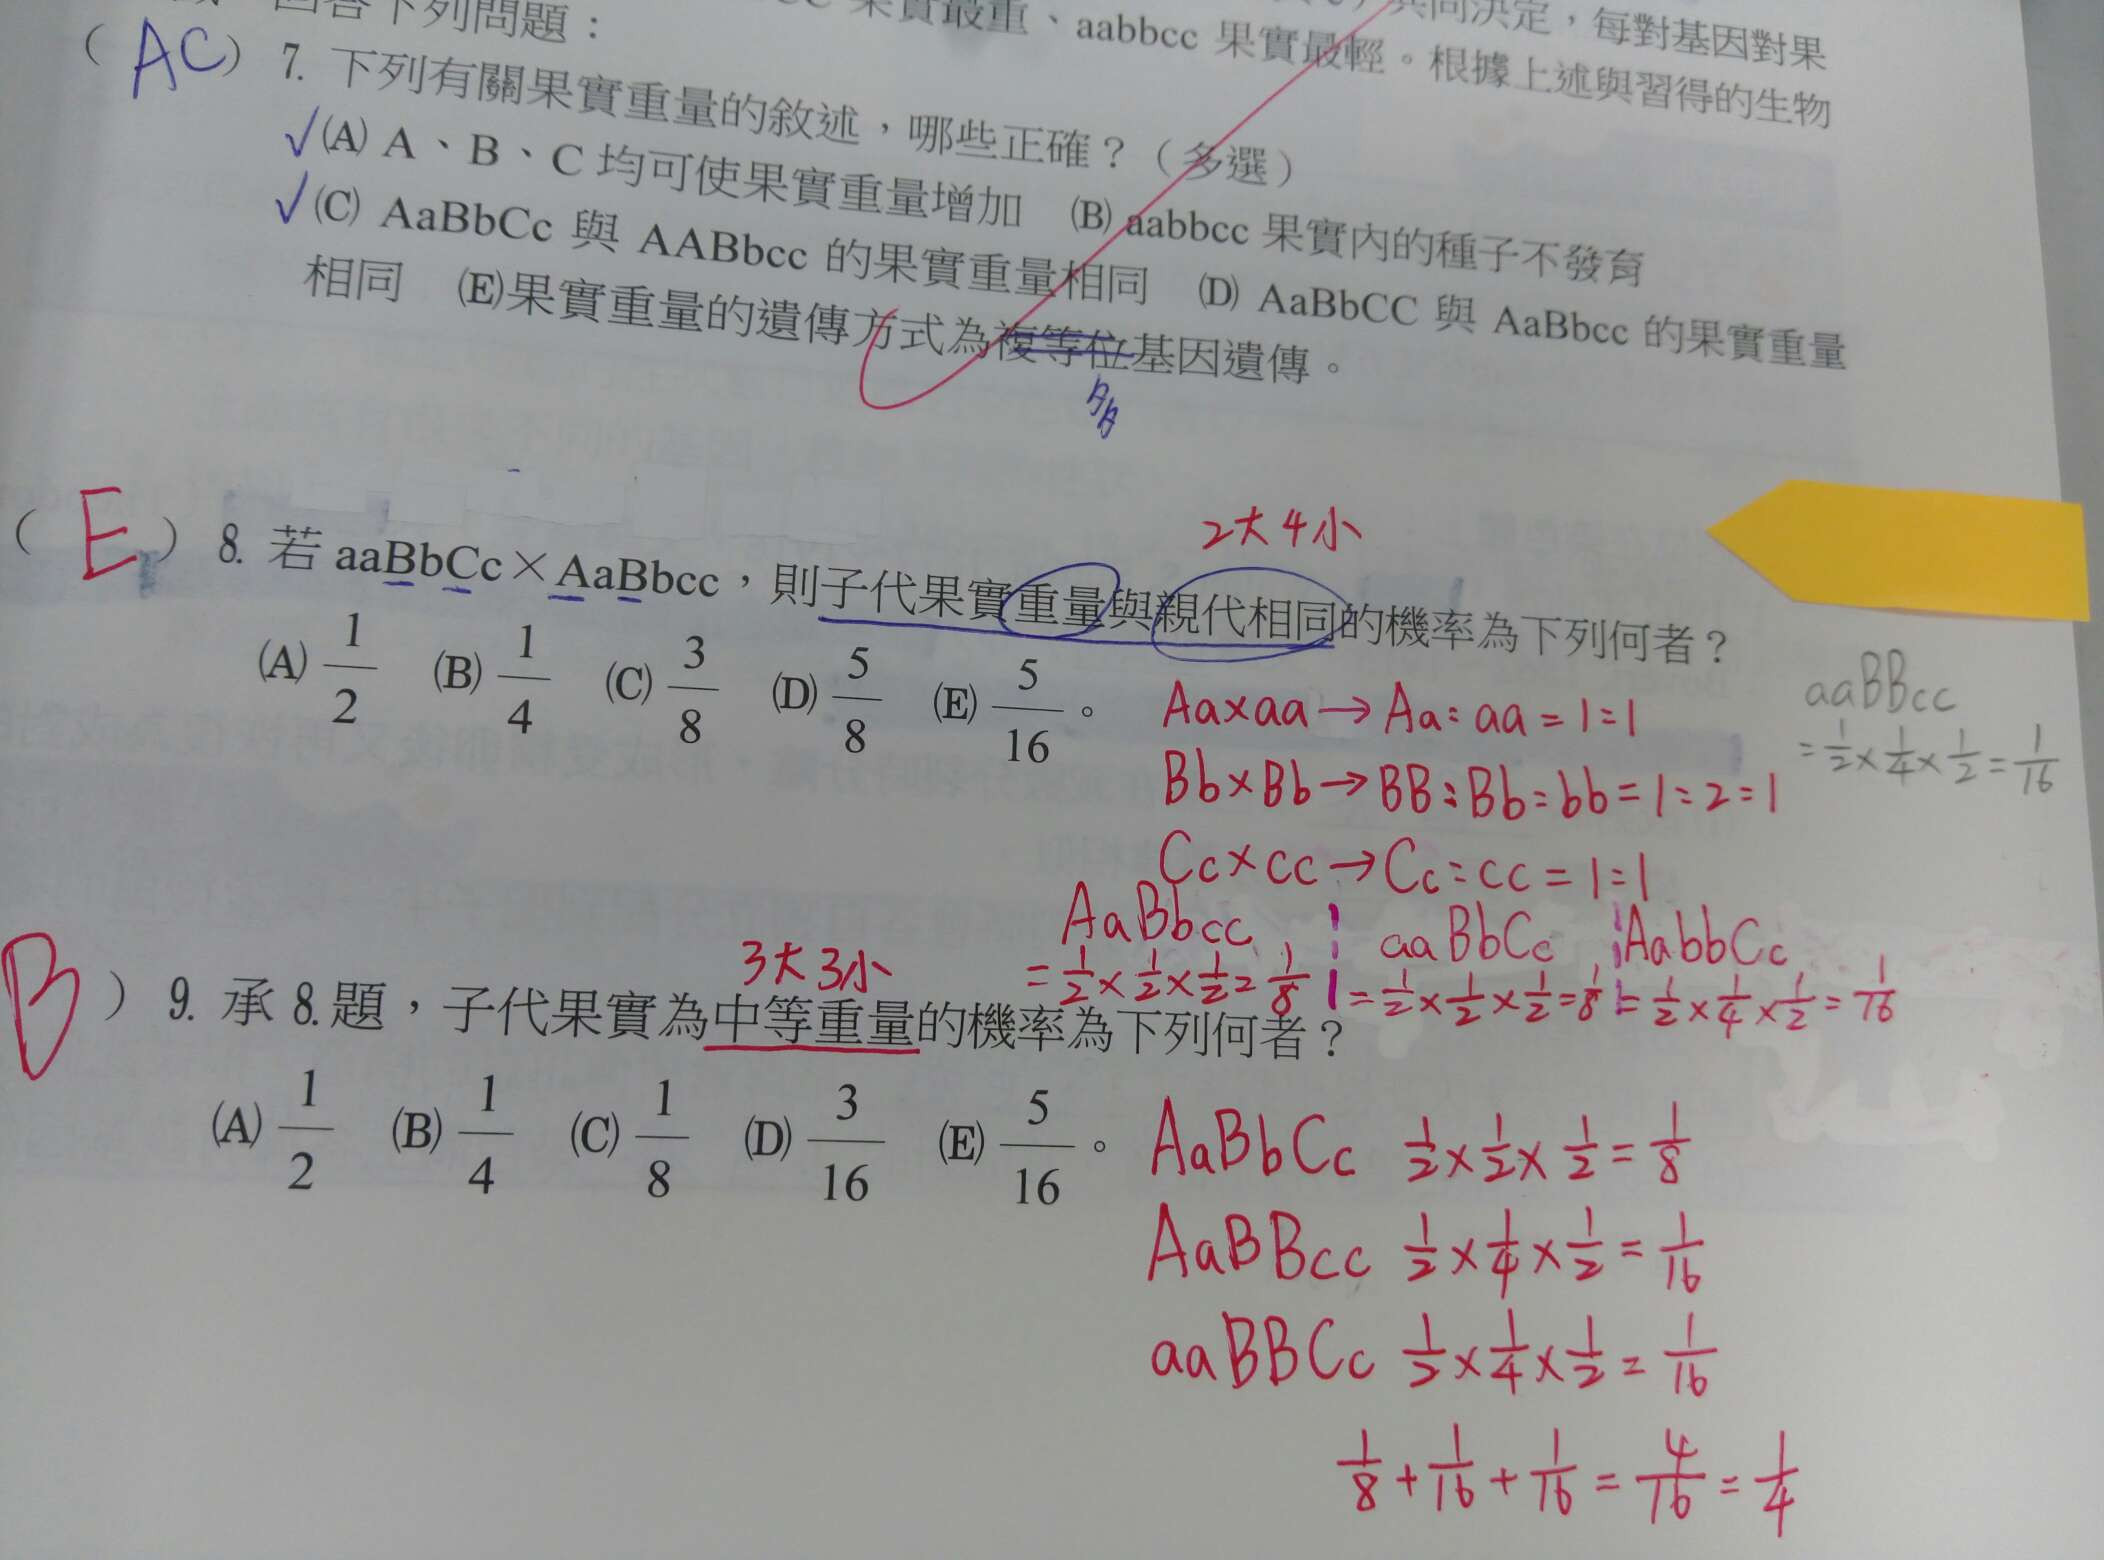 回答下列問題：
果實最重、aabbcc 果實最輕。根據上述與習得的生物
共同決定，每對基因對果
(AC) 7. 下列有關果實重量的敘述，哪些正確？（多選）
✓(A) A、B、C 均可使果實重量增加 (B) aabbcc 果實內的種子不發育
✓(C) AaBbCc 與 AABbcc 的果實重量相同 (D) AaBbCC 與 AaBbcc 的果實重量
相同 (E)果實重量的遺傳方式為複等位基因遺傳。
2大4小
(E) 8. 若 aaBbCc×AaBbcc，則子代果實重量與親代相同的機率為下列何者？
(A) 1/2 (B) 1/4 (C) 3/8 (D) 5/8 (E) 5/16 。
Aa×aa→Aa:aa=1:1
aaBBcc
=1/2×1/4×1/2=1/16
Bb×Bb→BB:Bb:bb=1:2:1
Cc×cc→Cc:cc=1:1
AaBbcc aaBbCc AabbCc
=1/2×1/2×1/2=1/8 =1/2×1/2×1/2=1/8 =1/2×1/4×1/2=1/16
3大3小
B) 9. 承 8.題，子代果實為中等重量的機率為下列何者？
(A) 1/2 (B) 1/4 (C) 1/8 (D) 3/16 (E) 5/16 。
AaBbCc 1/2×1/2×1/2=1/8
AaBBcc 1/2×1/4×1/2=1/16
aaBBCc 1/2×1/4×1/2=1/16
1/8+1/16+1/16=4/16=1/4